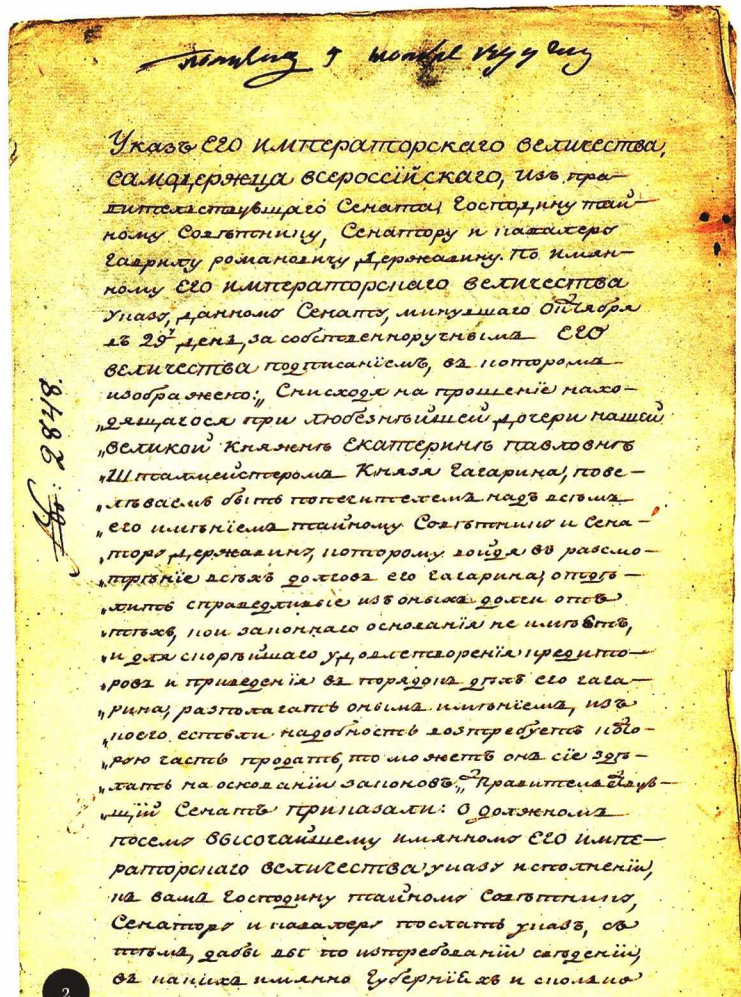 Указъ ЕГО ИМПЕРАТОРСКАГО ВЕЛИЧЕСТВА,
САМОДЕРЖЦА ВСЕРОССІЙСКАГО, изъ пра-
вительствующаго Сената, Господину тай-
ному Совѣтнику, Сенатору и кавалеру
Гаврилу Романовичу Державину. По имян-
ному ЕГО ИМПЕРАТОРСКАГО ВЕЛИЧЕСТВА
указу, данному Сенату, минувшаго Октября
въ 29 день, за собственноручнымъ ЕГО
ВЕЛИЧЕСТВА подписаніемъ, въ которомъ
изображено: „Снисходя на прошеніе нахо-
„дящагося при любезнѣйшей дочери нашей
„Великой Княжнѣ ЕКАТЕРИНѢ ПАВЛОВНѢ
„Шталмейстеромъ Князя Гагарина, пове-
„лѣваемъ быть попечителемъ надъ всѣмъ
„его имѣніемъ тайному Совѣтнику и Сена-
„тору Державину, которому войдя въ разсмо-
„трѣніе всѣхъ долговъ его Гагарина, отдѣ-
„лить справедливые изъ оныхъ долги отъ
„тѣхъ, кои законнаго основанія не имѣютъ,
„и для скорѣйшаго удовлетворенія кредито-
„ровъ и приведенія въ порядокъ дѣлъ его Гага-
„рина, располагать онымъ имѣніемъ, изъ
„коего естьли надобность возтребуетъ нѣко-
„рую часть продать, то можетъ онъ сіе здѣ-
„лать на основаніи законовъ“. Правительствую-
„щій Сенатъ ПРИКАЗАЛИ: о должномъ
посему ВЫСОЧАЙШЕМУ имянному ЕГО ИМПЕ-
РАТОРСКАГО ВЕЛИЧЕСТВА указу исполненіи,
къ вамъ Господину тайному Совѣтнику,
Сенатору и кавалеру послать указъ, съ
тѣмъ, дабы вы по истребованіи свѣденій,
въ какихъ имянно Губерніяхъ и сколько
№: 2848
2